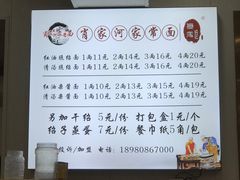 肖家河家常面
红油照结面 1两11元 2两14元 3两16元 4两20元
清汤照结面 1两11元 2两14元 3两16元 4两20元
红油杂酱面 1两10元 2两13元 3两15元 4两19元
清汤杂酱面 1两10元 2两13元 3两15元 4两19元
另加干结 5元/份 打包盒1元/个
结子蒸蛋 7元/份 餐巾纸5角/包
投诉/加盟 电话：18980867000